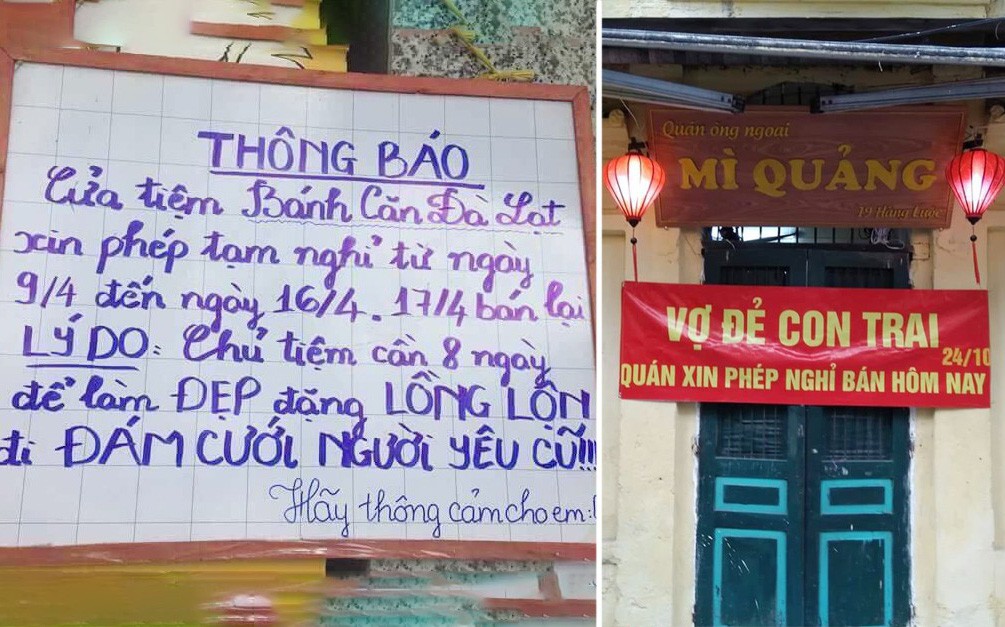 THÔNG BÁO
Cửa tiệm Bánh Căn Đà Lạt
xin phép tạm nghỉ từ ngày
9/4 đến ngày 16/4. 17/4 bán lại
LÝ DO: Chủ tiệm cần 8 ngày
để làm ĐẸP đặng LỒNG LỘN
đi ĐÁM CƯỚI NGƯỜI YÊU CŨ!!!
Hãy thông cảm cho em :(
Quán ông ngoại
MÌ QUẢNG
19 Hàng Lược
VỢ ĐẺ CON TRAI
24/10
QUÁN XIN PHÉP NGHỈ BÁN HÔM NAY